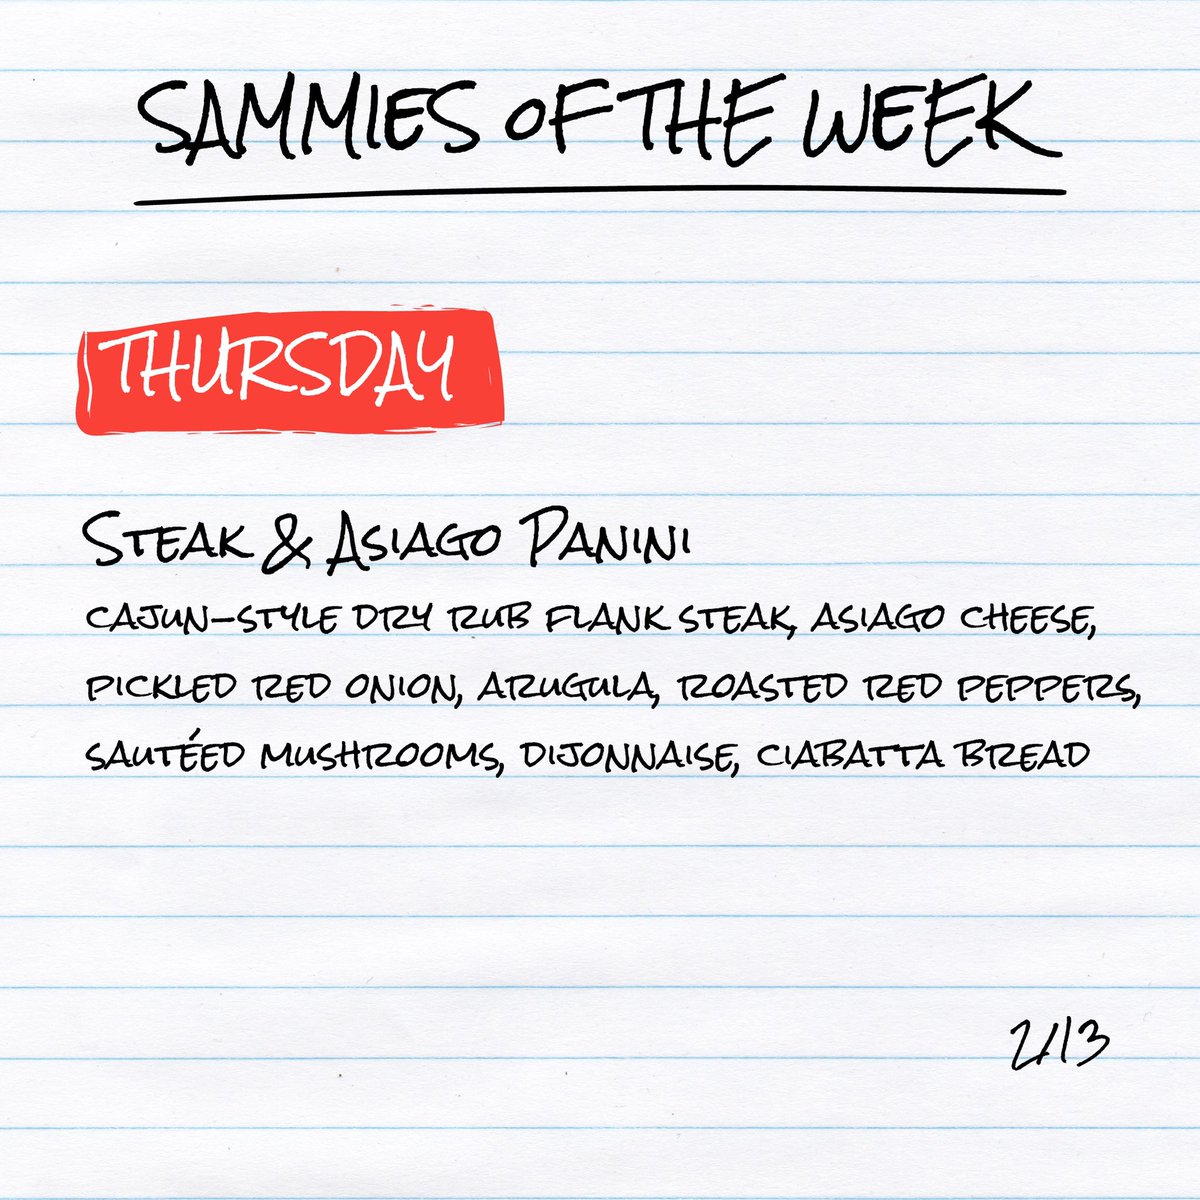 SAMMIES OF THE WEEK
THURSDAY
STEAK & ASIAGO PANINI
CAJUN-STYLE DRY RUB FLANK STEAK, ASIAGO CHEESE,
PICKLED RED ONION, ARUGULA, ROASTED RED PEPPERS,
SAUTÉED MUSHROOMS, DIJONNAISE, CIABATTA BREAD
2/13